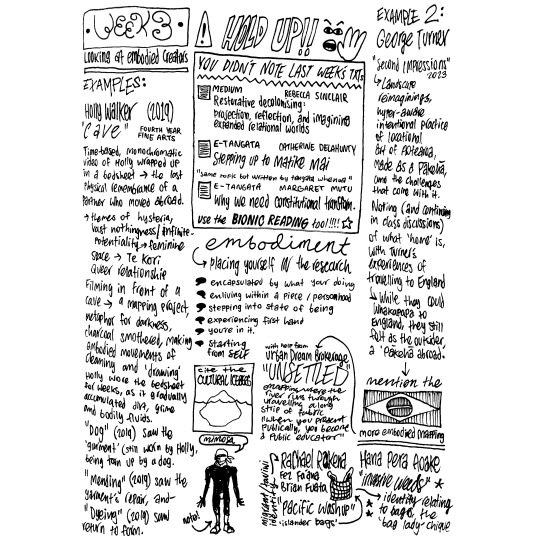 WEEK 3
Looking at embodied creators
EXAMPLES:
Holly Walker (2019)
"Cave" FOURTH YEAR
FINE ARTS
Time-based, monochromatic
video of Holly wrapped up
in a bedsheet → the last
physical remembrance of a
partner who moved abroad.
→ themes of hysteria,
last nothingness/infinite-
potentiality → feminine
space → Te Kori
queer relationship
Filming in front of a
cave → a mapping project,
metaphor for darkness,
charcoal smothered, making
embodied movements of
cleaning and 'drawing'
Holly wore the bedsheet
for weeks, as it gradually
accumulated dirt, grime
and bodily fluids.
"Dog" (2019) saw the
'garment' (still worn by Holly,
being torn up by a dog.
"Mending" (2019) saw the
garment's repair, and
"Dyeing" (2019) saw
return to form.
! HOLD UP!!
YOU DIDN'T NOTE LAST WEEK'S TXTs
MEDIUM REBECCA SINCLAIR
Restorative decolonising:
projection, reflection, and imagining
expanded relational worlds
E-TANGATA CATHERINE DELAHUNTY
Stepping up to Matike Mai
"same topic but written by tangata whenua"
E-TANGATA MARGARET MUTU
Why we need constitutional transfrm.
use the BIONIC READING tool!!!!
embodiment
↳ placing yourself IN the research
encapsulated by what your doing
enliving within a piece / personhood
stepping into state of being
experiencing first hand
you're in it.
starting
from SELF
cite the
CULTURAL ICEBERG
mimosa
nota!
with help from
Urban Dream Brokerage
"UNSETTLED"
mapping where the
river runs through
travelling along
strip of fabric
"when you present
publically, you become
a public educator"
migrant/kowiwi
identity
Rachael Rakena
Fez Fa'ana
Brian Fuata
"Pacific Washup"
'islander bags'
EXAMPLE 2:
George Turner
"Second Impressions"
2023
↳ Landscape
reimaginings,
hyper-aware
intentional practice
of locational
art of Aotearoa,
made as a Pākehā,
and the challenges
that come with it.
Noting (and continuing
in class discussions)
of what 'home' is,
with Turner's
experiences of
travelling to England
↳ while they could
whakapapa to
England, they still
felt as the outsider,
a 'Pākehā abroad.'
mention the
more embodied mapping
Hana Pera Aoake
"invasive weeds"
identity relating
to bags, the
'bag lady' chique